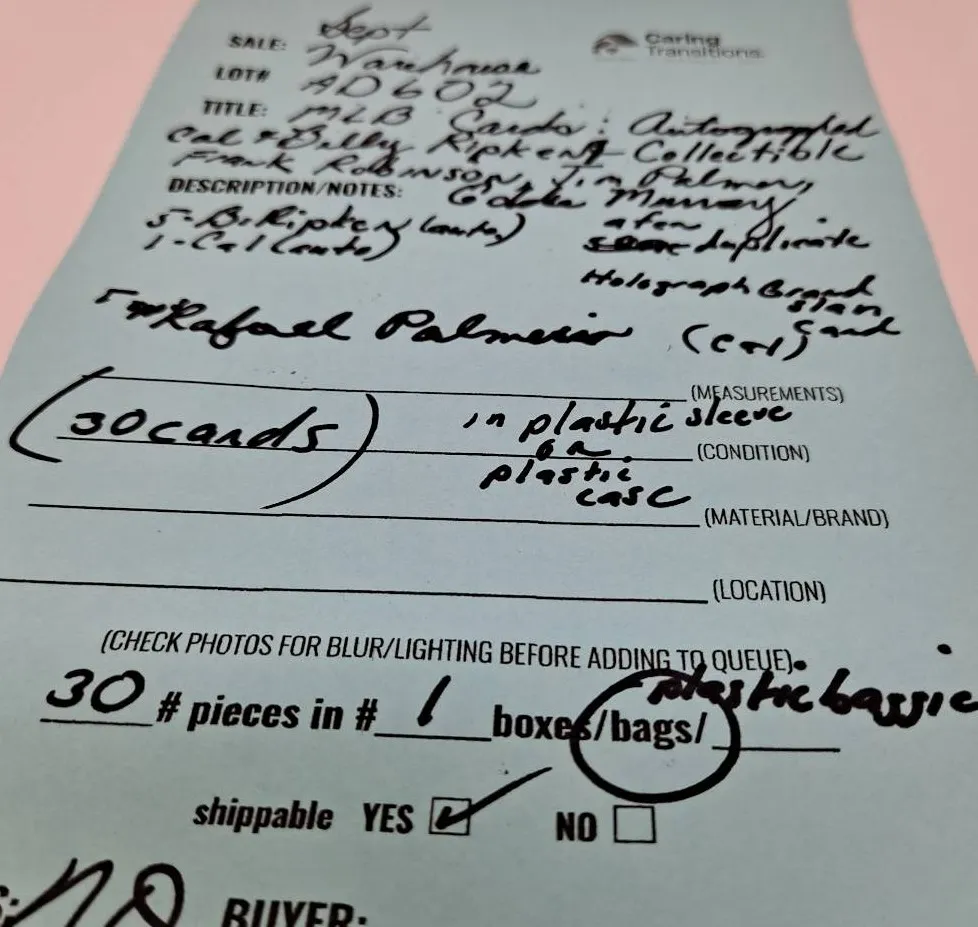 Caring
Transitions
SALE: Sept
Warehouse
LOT# AD602
TITLE: MLB Cards: Autographed
Cal & Billy Ripken Collectible
Frank Robinson, Jim Palmer,
DESCRIPTION/NOTES: Eddie Murray
5-B. Ripken (auto) a few
1-Cal (auto) duplicate
Holograph Grand
Slam
5 Rafael Palmeiro (Cal) Card
(MEASUREMENTS)
(30 cards) in plastic sleeve
or (CONDITION)
plastic
case
(MATERIAL/BRAND)
(LOCATION)
(CHECK PHOTOS FOR BLUR/LIGHTING BEFORE ADDING TO QUEUE)
plastic baggie
30 # pieces in # 1 boxes/bags/
shippable YES NO
BUYER: